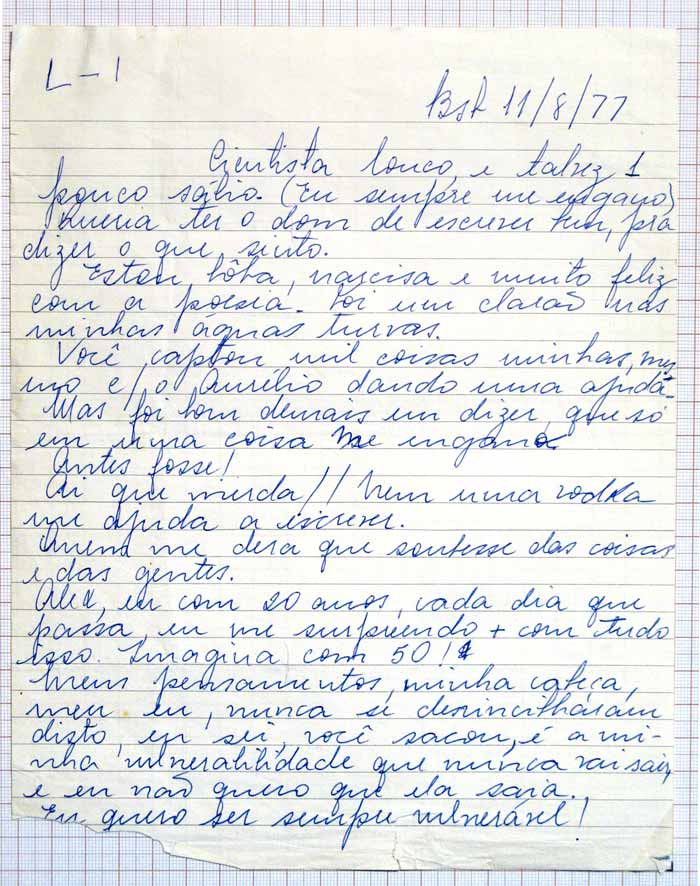 L-1
Bsb 11/8/77
Cientista louco, e talvez 1
pouco sábio. (Eu sempre me engano)
Queria ter o dom de escrever bem, pra
dizer o que sinto.
Estou bôba, narcisa e muito feliz
com a poesia. Foi um clarão nas
minhas águas turvas.
Você captou mil coisas minhas, mes
mo c/ o Aurélio dando uma ajuda.
Mas foi bom demais em dizer, que só
em uma coisa me engano
Antes fosse!
Ai que merda!! Nem uma vodka
me ajuda a escrever.
Quem me dera que soubesse das coisas
e das gentes.
Alex, eu com 20 anos, cada dia que
passa, eu me surpreendo + com tudo
isso. Imagina com 50!
Meus pensamentos, minha cabeça,
meu eu, nunca se desvincilharam
disto, eu sei, você sacou, é a mi-
nha vulnerabilidade que nunca vai sair,
e eu não quero que ela saia.
Eu quero ser sempre vulnerável!